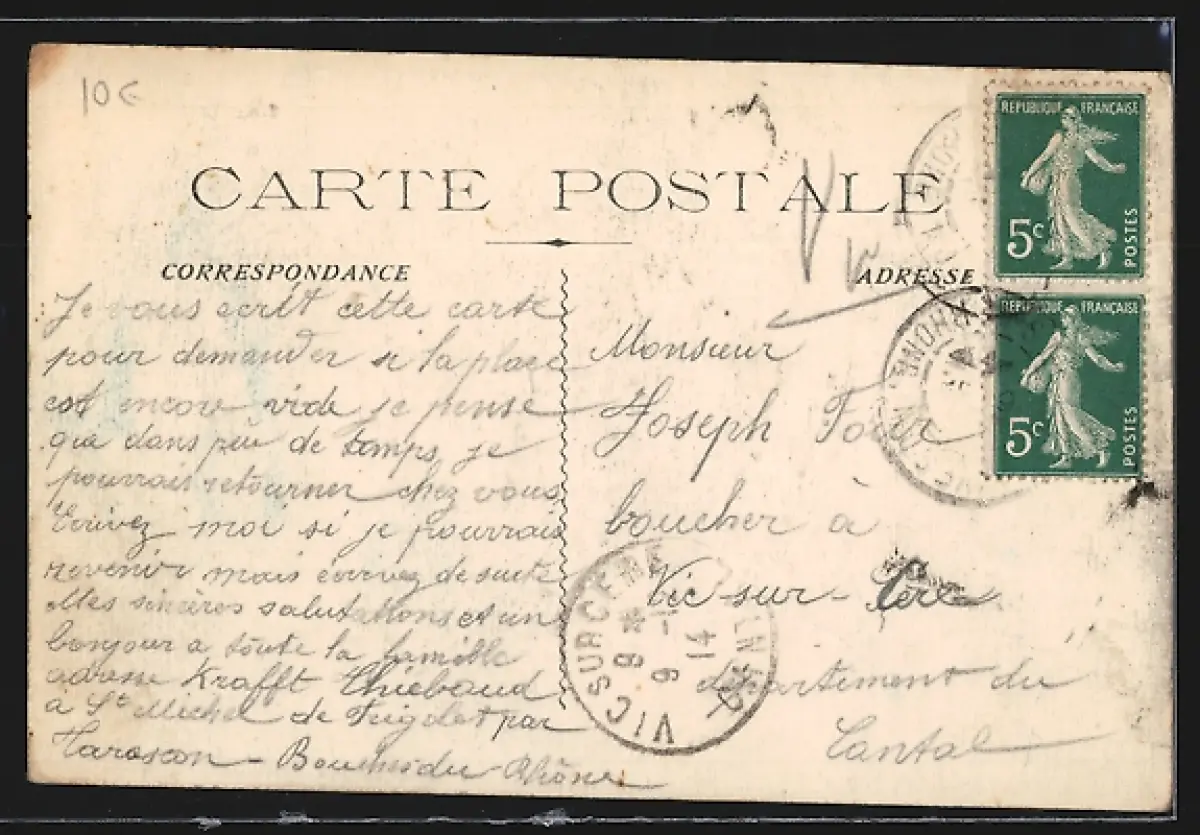 10€
CARTE POSTALE
CORRESPONDANCE
Je vous ecrit cette carte
pour demander si la place
est encore vide je pense
que dans peu de temps je
pourrais retourner chez vous
Ecrivez moi si je pourrais
revenir mais écrivez de suite
Mes sincères salutations et un
bonjour a toute la famille
adresse Krafft Thiebaud
à St Michel de Frigolet par
Tarascon - Bouches du Rhône
ADRESSE
Monsieur
Joseph
boucher à
Vic-sur-Cère
département du
Cantal
REPUBLIQUE FRANÇAISE
5c POSTES
REPUBLIQUE FRANÇAISE
5c POSTES
VIC SUR CERE
CANTAL
8 *
9 -1
14